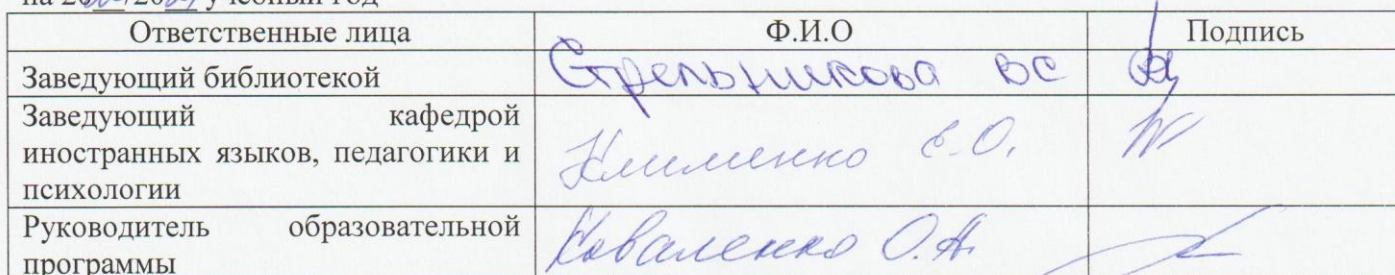 на 20 /20 учебный год
Ответственные лица Ф.И.О Подпись
Заведующий библиотекой Стрельникова ВС
Заведующий кафедрой
иностранных языков, педагогики и Клименко Е.О.
психологии
Руководитель образовательной Коваленко О.А.
программы